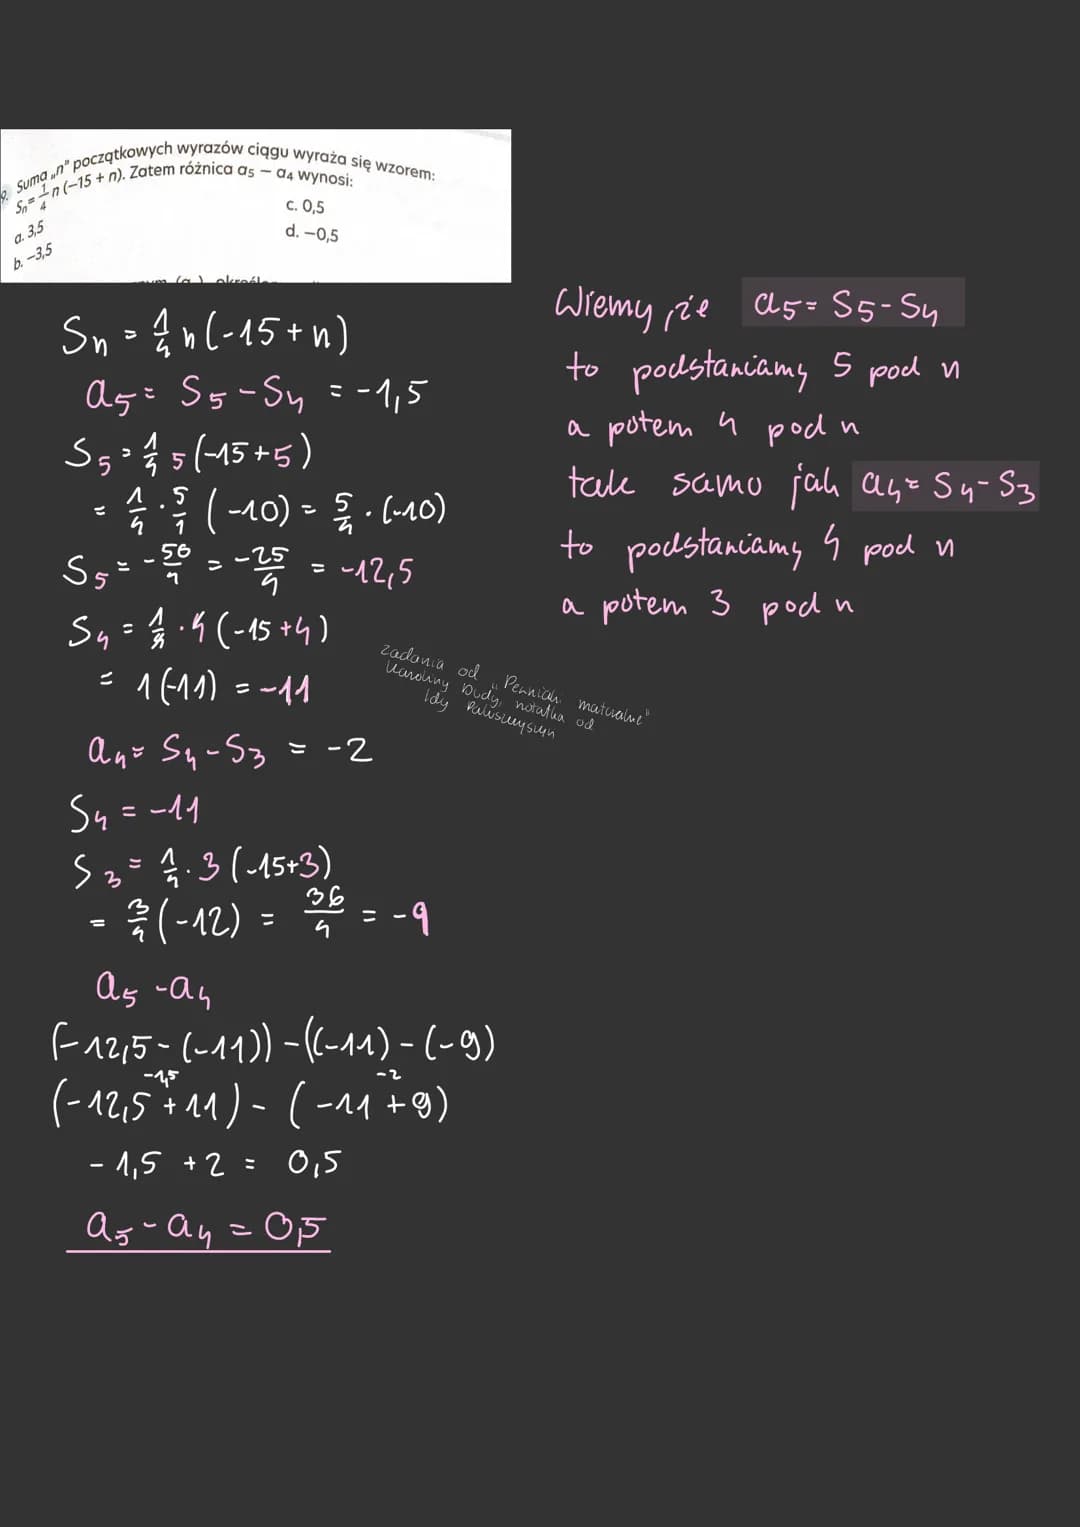 9. Suma „n" początkowych wyrazów ciągu wyraża się wzorem:
Sn= 1/4 n (−15 + n). Zatem różnica a5 − a4 wynosi:
a. 3,5
c. 0,5
b. −3,5
d. −0,5
Sn = 1/4 n(-15+n)
a5 = S5-S4 = -1,5
S5 = 1/4 5(-15+5)
= 1/4 · 5/1 (-10) = 5/4 · (-10)
S5 = -50/4 = -25/4 = -12,5
S4 = 1/4 · 4(-15+4)
= 1(-11) = -11
a4 = S4-S3 = -2
S4 = -11
S3 = 1/4 · 3(-15+3)
= 3/4(-12) = 36/4 = -9
a5 - a4
(-12,5-(-11)) - ((-11)-(-9)
-1,5 -2
(-12,5+11) - (-11+9)
-1,5 +2 = 0,5
a5-a4 = 0,5
Wiemy, że a5= S5-S4
to podstaniamy 5 pod n
a potem 4 pod n
tak samo jak a4= S4-S3
to podstaniamy 4 pod n
a potem 3 pod n
zadania od „Pewniak maturalne"
Karoliny Dudy, notatka od
Idy